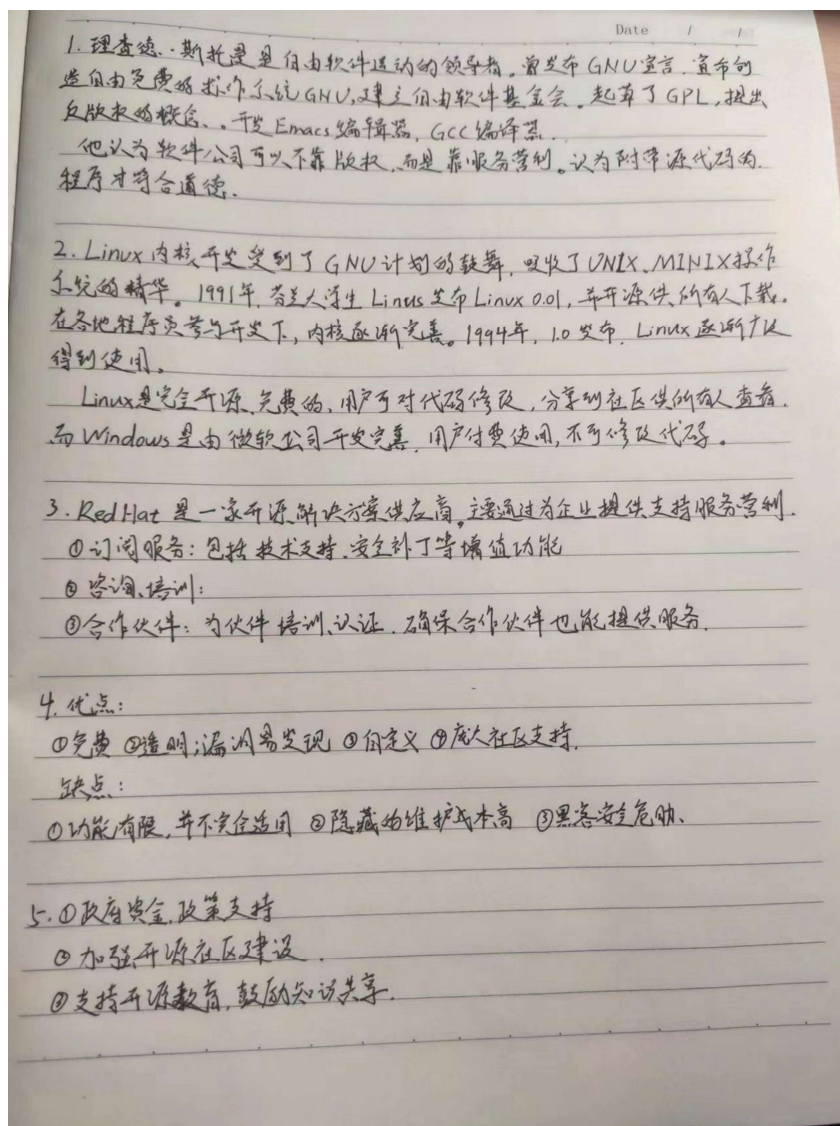 Date / /
1. 理查德·斯托曼是自由软件运动的领导者。曾发布GNU宣言,宣布创
造自由免费的操作系统GNU,建立自由软件基金会。起草了GPL,提出
反版权的概念、。开发Emacs编辑器,GCC编译器.
他认为软件公司可以不靠版权,而是靠服务营利。认为附带源代码的
程序才符合道德.
2. Linux内核开发受到了GNU计划的鼓舞,吸收了UNIX、MINIX操作
系统的精华。1991年,芬兰大学生Linus发布Linux 0.01,并开源供所有人下载。
在各地程序员参与开发下,内核逐渐完善。1994年,1.0发布,Linux逐渐广泛
得到使用。
Linux是完全开源、免费的,用户可对代码修改,分享到社区供所有人查看.
而Windows是由微软公司开发完善,用户付费使用,不可修改代码。
3. RedHat是一家开源解决方案供应商。主要通过为企业提供支持服务营利.
①订阅服务:包括技术支持、安全补丁等增值功能
②咨询、培训:
③合作伙伴:为伙伴培训、认证,确保合作伙伴也能提供服务.
4. 优点:
①免费 ②透明;漏洞易发现 ③自定义 ④庞大社区支持.
缺点:
①功能有限,并不完全适用 ②隐藏的维护成本高 ③黑客安全危胁、
5. ①政府资金、政策支持
②加强开源社区建设.
③支持开源教育,鼓励知识共享.